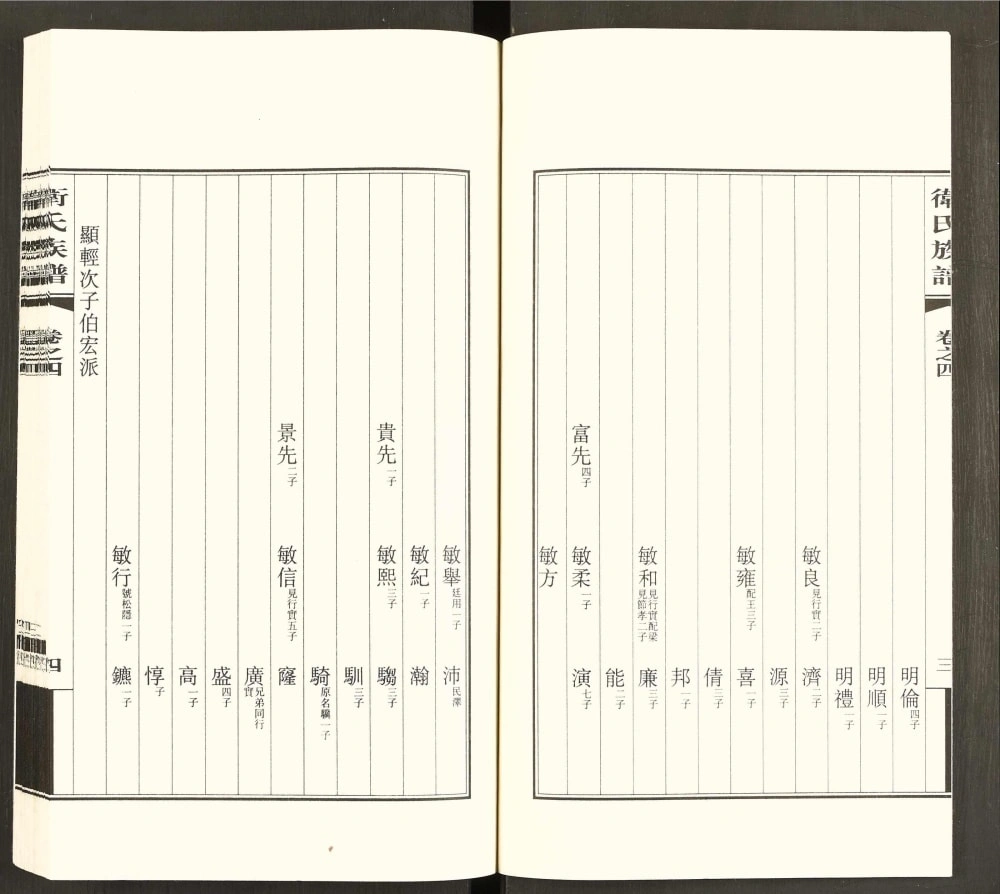 衛氏族譜 卷之四 三
明倫 四子
明順 一子
明禮 二子
敏良 見行實二子 濟 二子
源 三子
敏雍 配王三子 喜 一子
倩 三子
邦 一子
敏和 見行實配梁見節孝二子 廉 三子
能 二子
富先 四子 敏柔 一子 演 七子
敏方
敏舉 廷用一子 沛 民澤
敏紀 一子 瀚
貴先 一子 敏熙 三子 騶 三子
馴 三子
騎 原名驥一子
景先 二子 敏信 見行實五子 窿
廣 兄弟同行實
盛 四子
高 一子
惇 子
敏行 號松隱一子 鑣 一子
顯輕次子伯宏派
衛氏族譜 卷之四 四